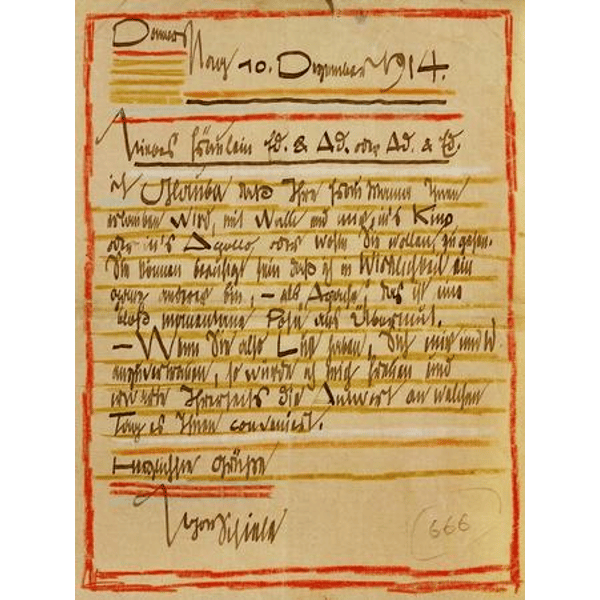 Donnerstag 10. Dezember 1914.
Liebes Fräulein Ed. & Ad. oder Ad. & Ed.
ich Glaube daß Ihre Frau Mama Ihnen
erlauben wird, mit Walli und mir, in's Kino
oder in's Apollo, oder wohin Sie wollen, zu gehen.
Sie können beruhigt sein daß ich in Wirklichkeit ein
ganz anderer bin, – als „Apache", das ist nur
bloß momentane Pose aus Übermut.
– Wenn Sie also Lust haben, Sich mir und W.
anzuvertrauen, so würde es mich freuen und
erwarte Ihrerseits die Antwort an welchem
Tag es Ihnen conveniert.
Herzlichste Grüße
Egon Schiele
666